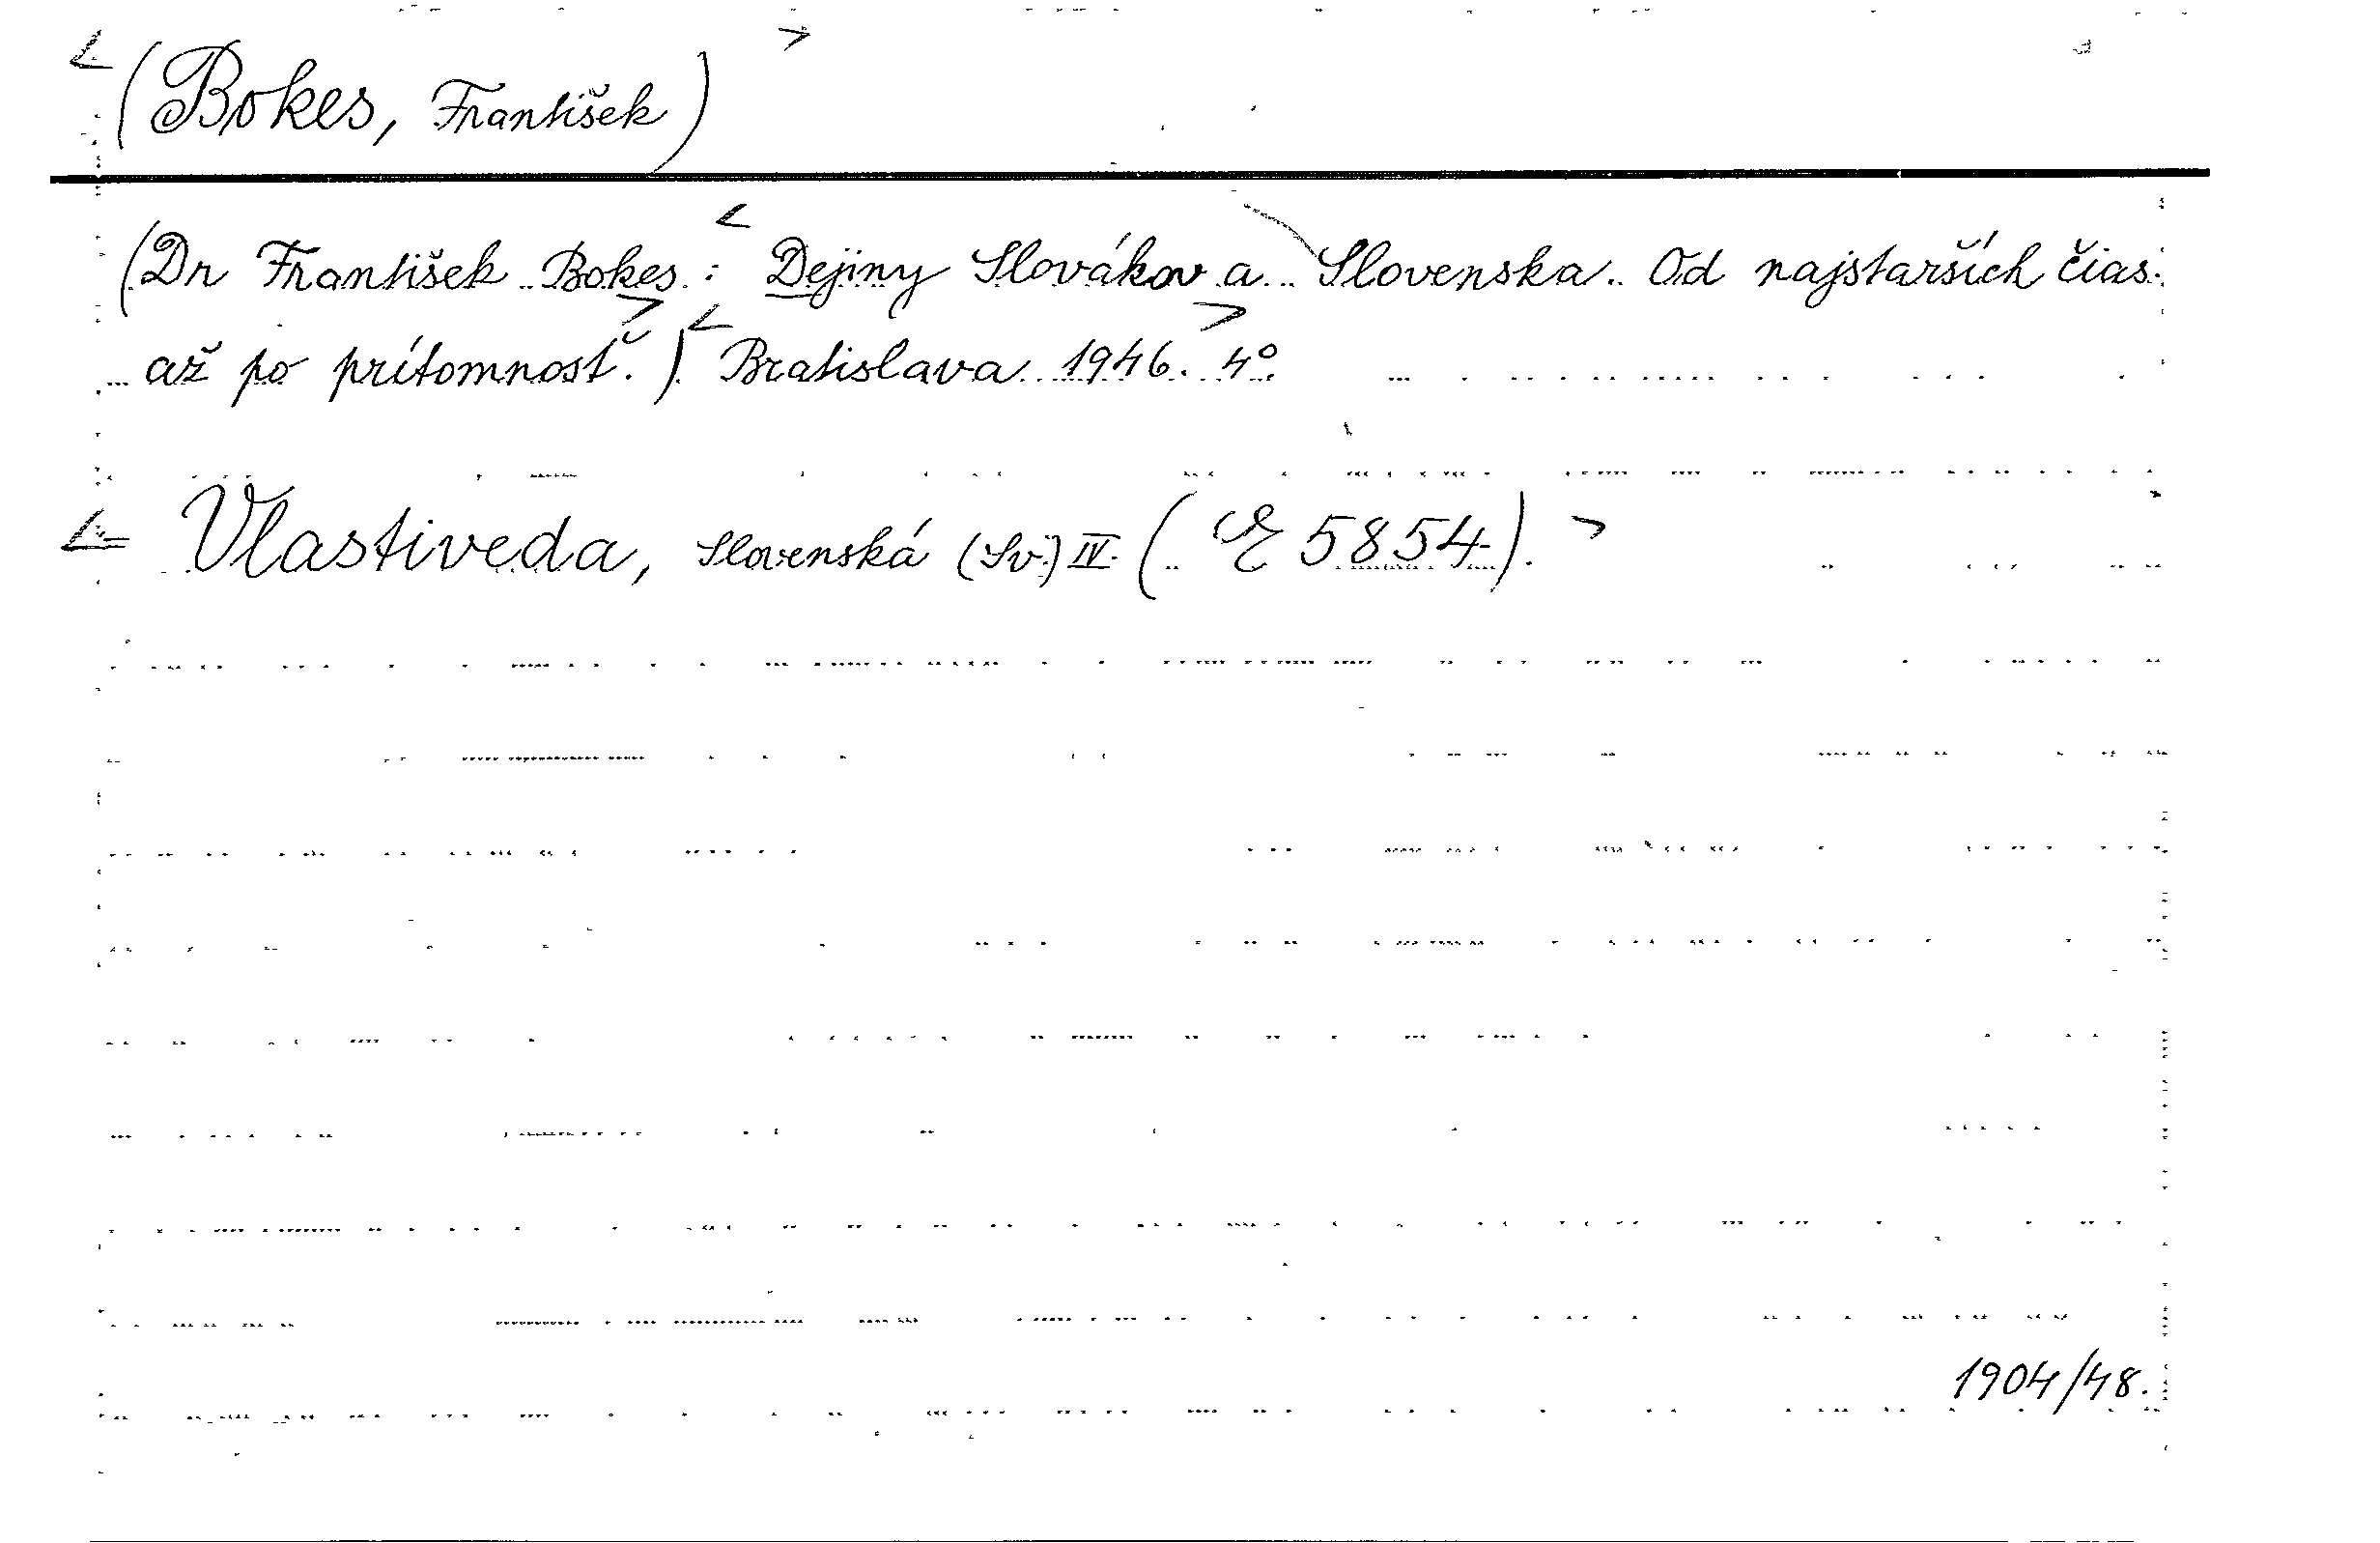 <(Bokes, František)>
(Dr František Bokes: <Dejiny Slovákov a Slovenska. Od najstarších čias
až po prítomnosť.>) <Bratislava 1946. 4°.>
<= Vlastiveda, Slovenská (Sv.) IV. ( 5854).>
1904/48.